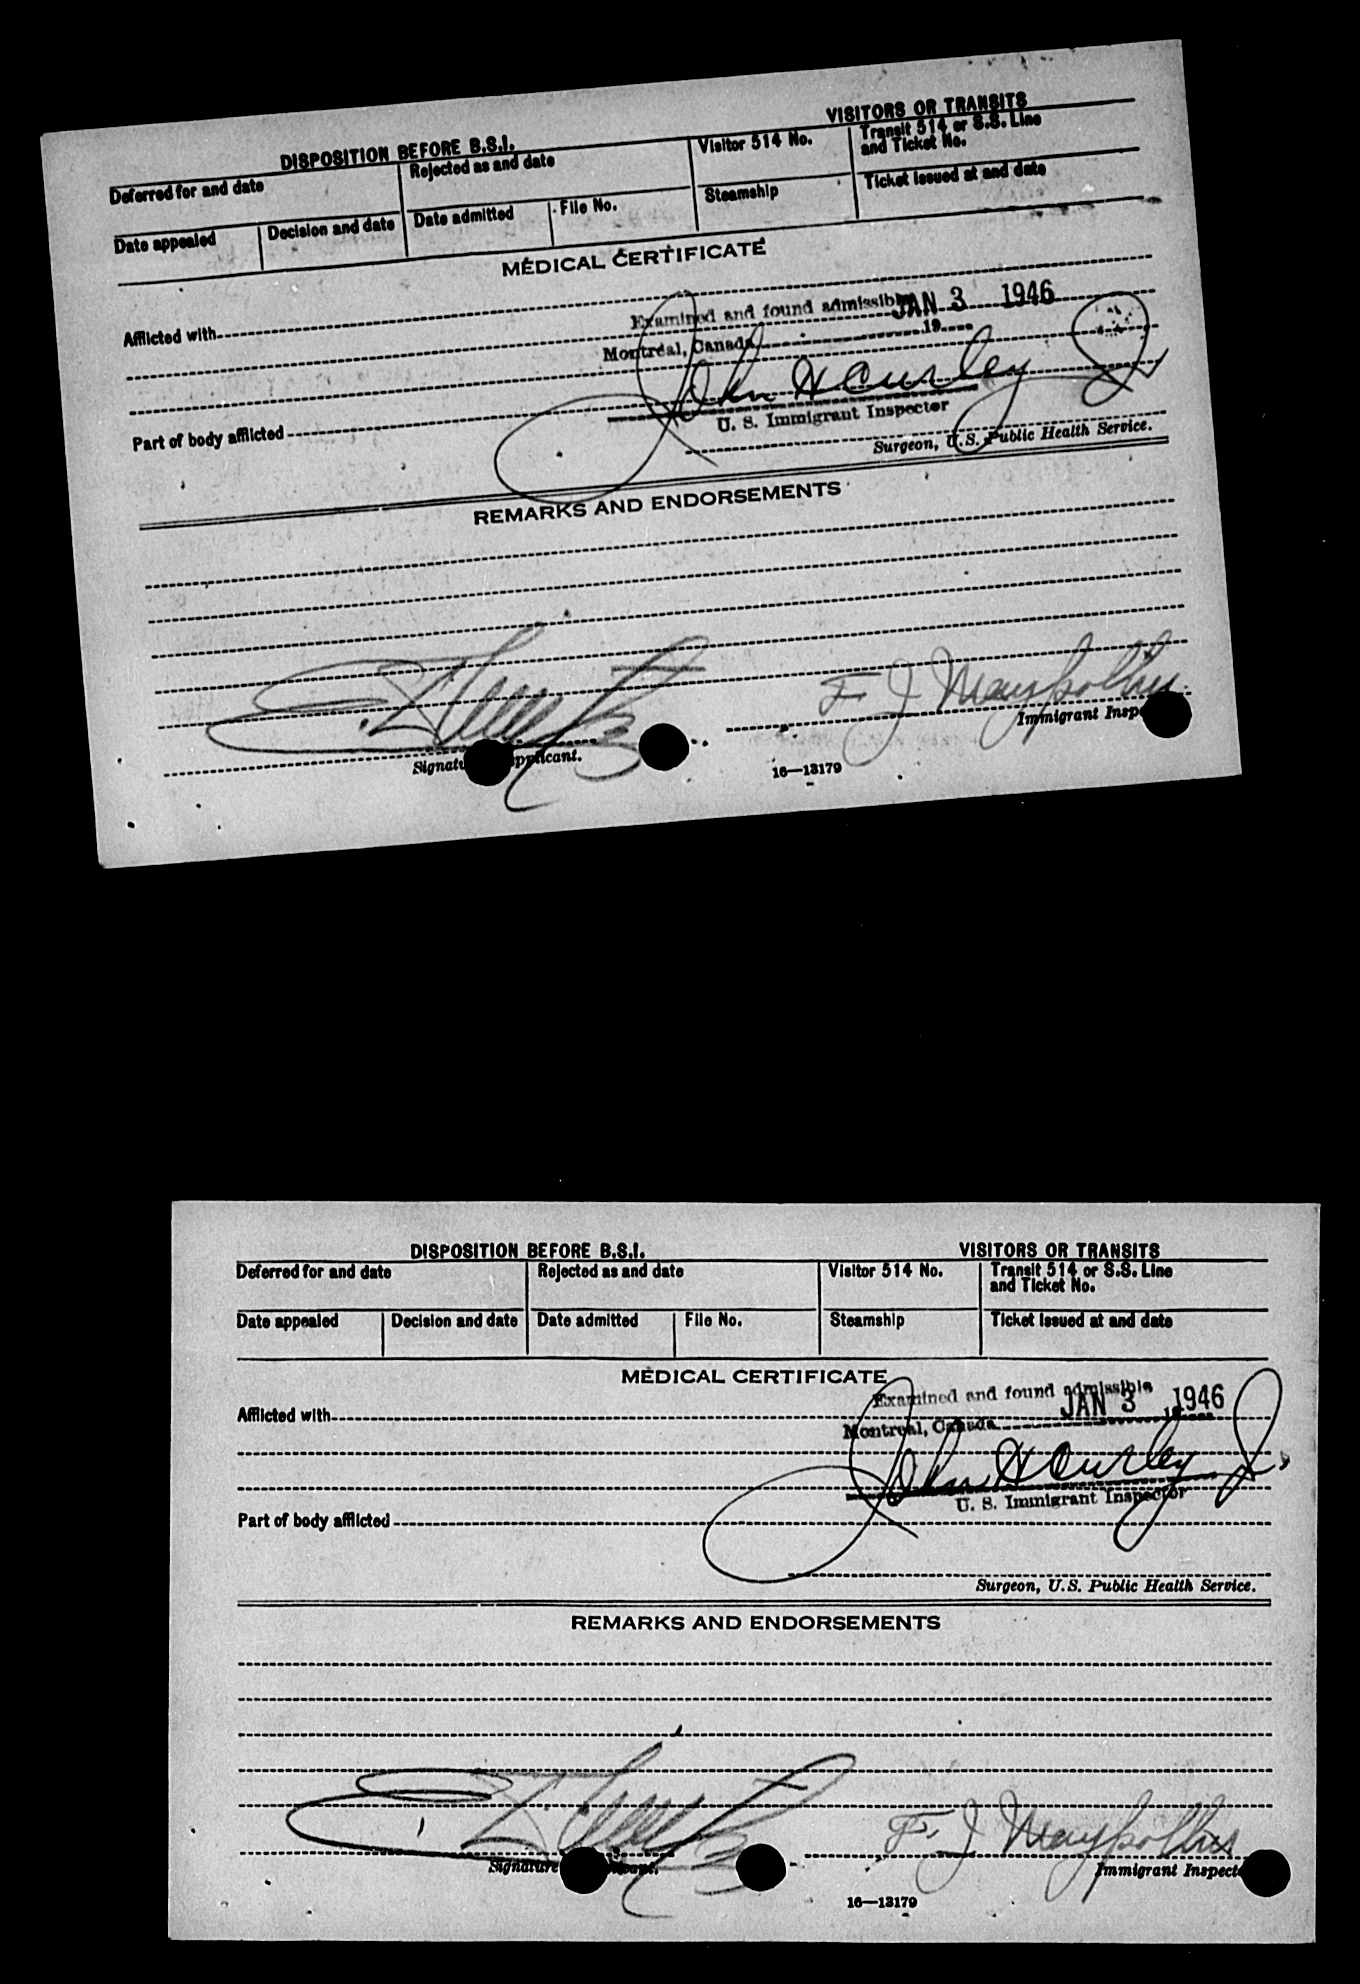 DISPOSITION BEFORE B.S.I.
VISITORS OR TRANSITS
Deferred for and date
Rejected as and date
Visitor 514 No.
Transit 514 or S.S. Line
and Ticket No.
Date appealed
Decision and date
Date admitted
File No.
Steamship
Ticket issued at and date
MEDICAL CERTIFICATE
Afflicted with
Examined and found admissible
JAN 3 1946
Montreal, Canada 19
John H Curley
U. S. Immigrant Inspector
Part of body afflicted
Surgeon, U.S. Public Health Service.
REMARKS AND ENDORSEMENTS
F. J.
Immigrant Inspe
Signatu pplicant.
16—13179
DISPOSITION BEFORE B.S.I.
VISITORS OR TRANSITS
Deferred for and date
Rejected as and date
Visitor 514 No.
Transit 514 or S.S. Line
and Ticket No.
Date appealed
Decision and date
Date admitted
File No.
Steamship
Ticket issued at and date
MEDICAL CERTIFICATE
Examined and found admissible
Afflicted with
JAN 3 1946
Montreal, Canada
John H Curley
U. S. Immigrant Inspector
Part of body afflicted
Surgeon, U.S. Public Health Service.
REMARKS AND ENDORSEMENTS
F. J.
Signature
Immigrant Inspect
16—13179